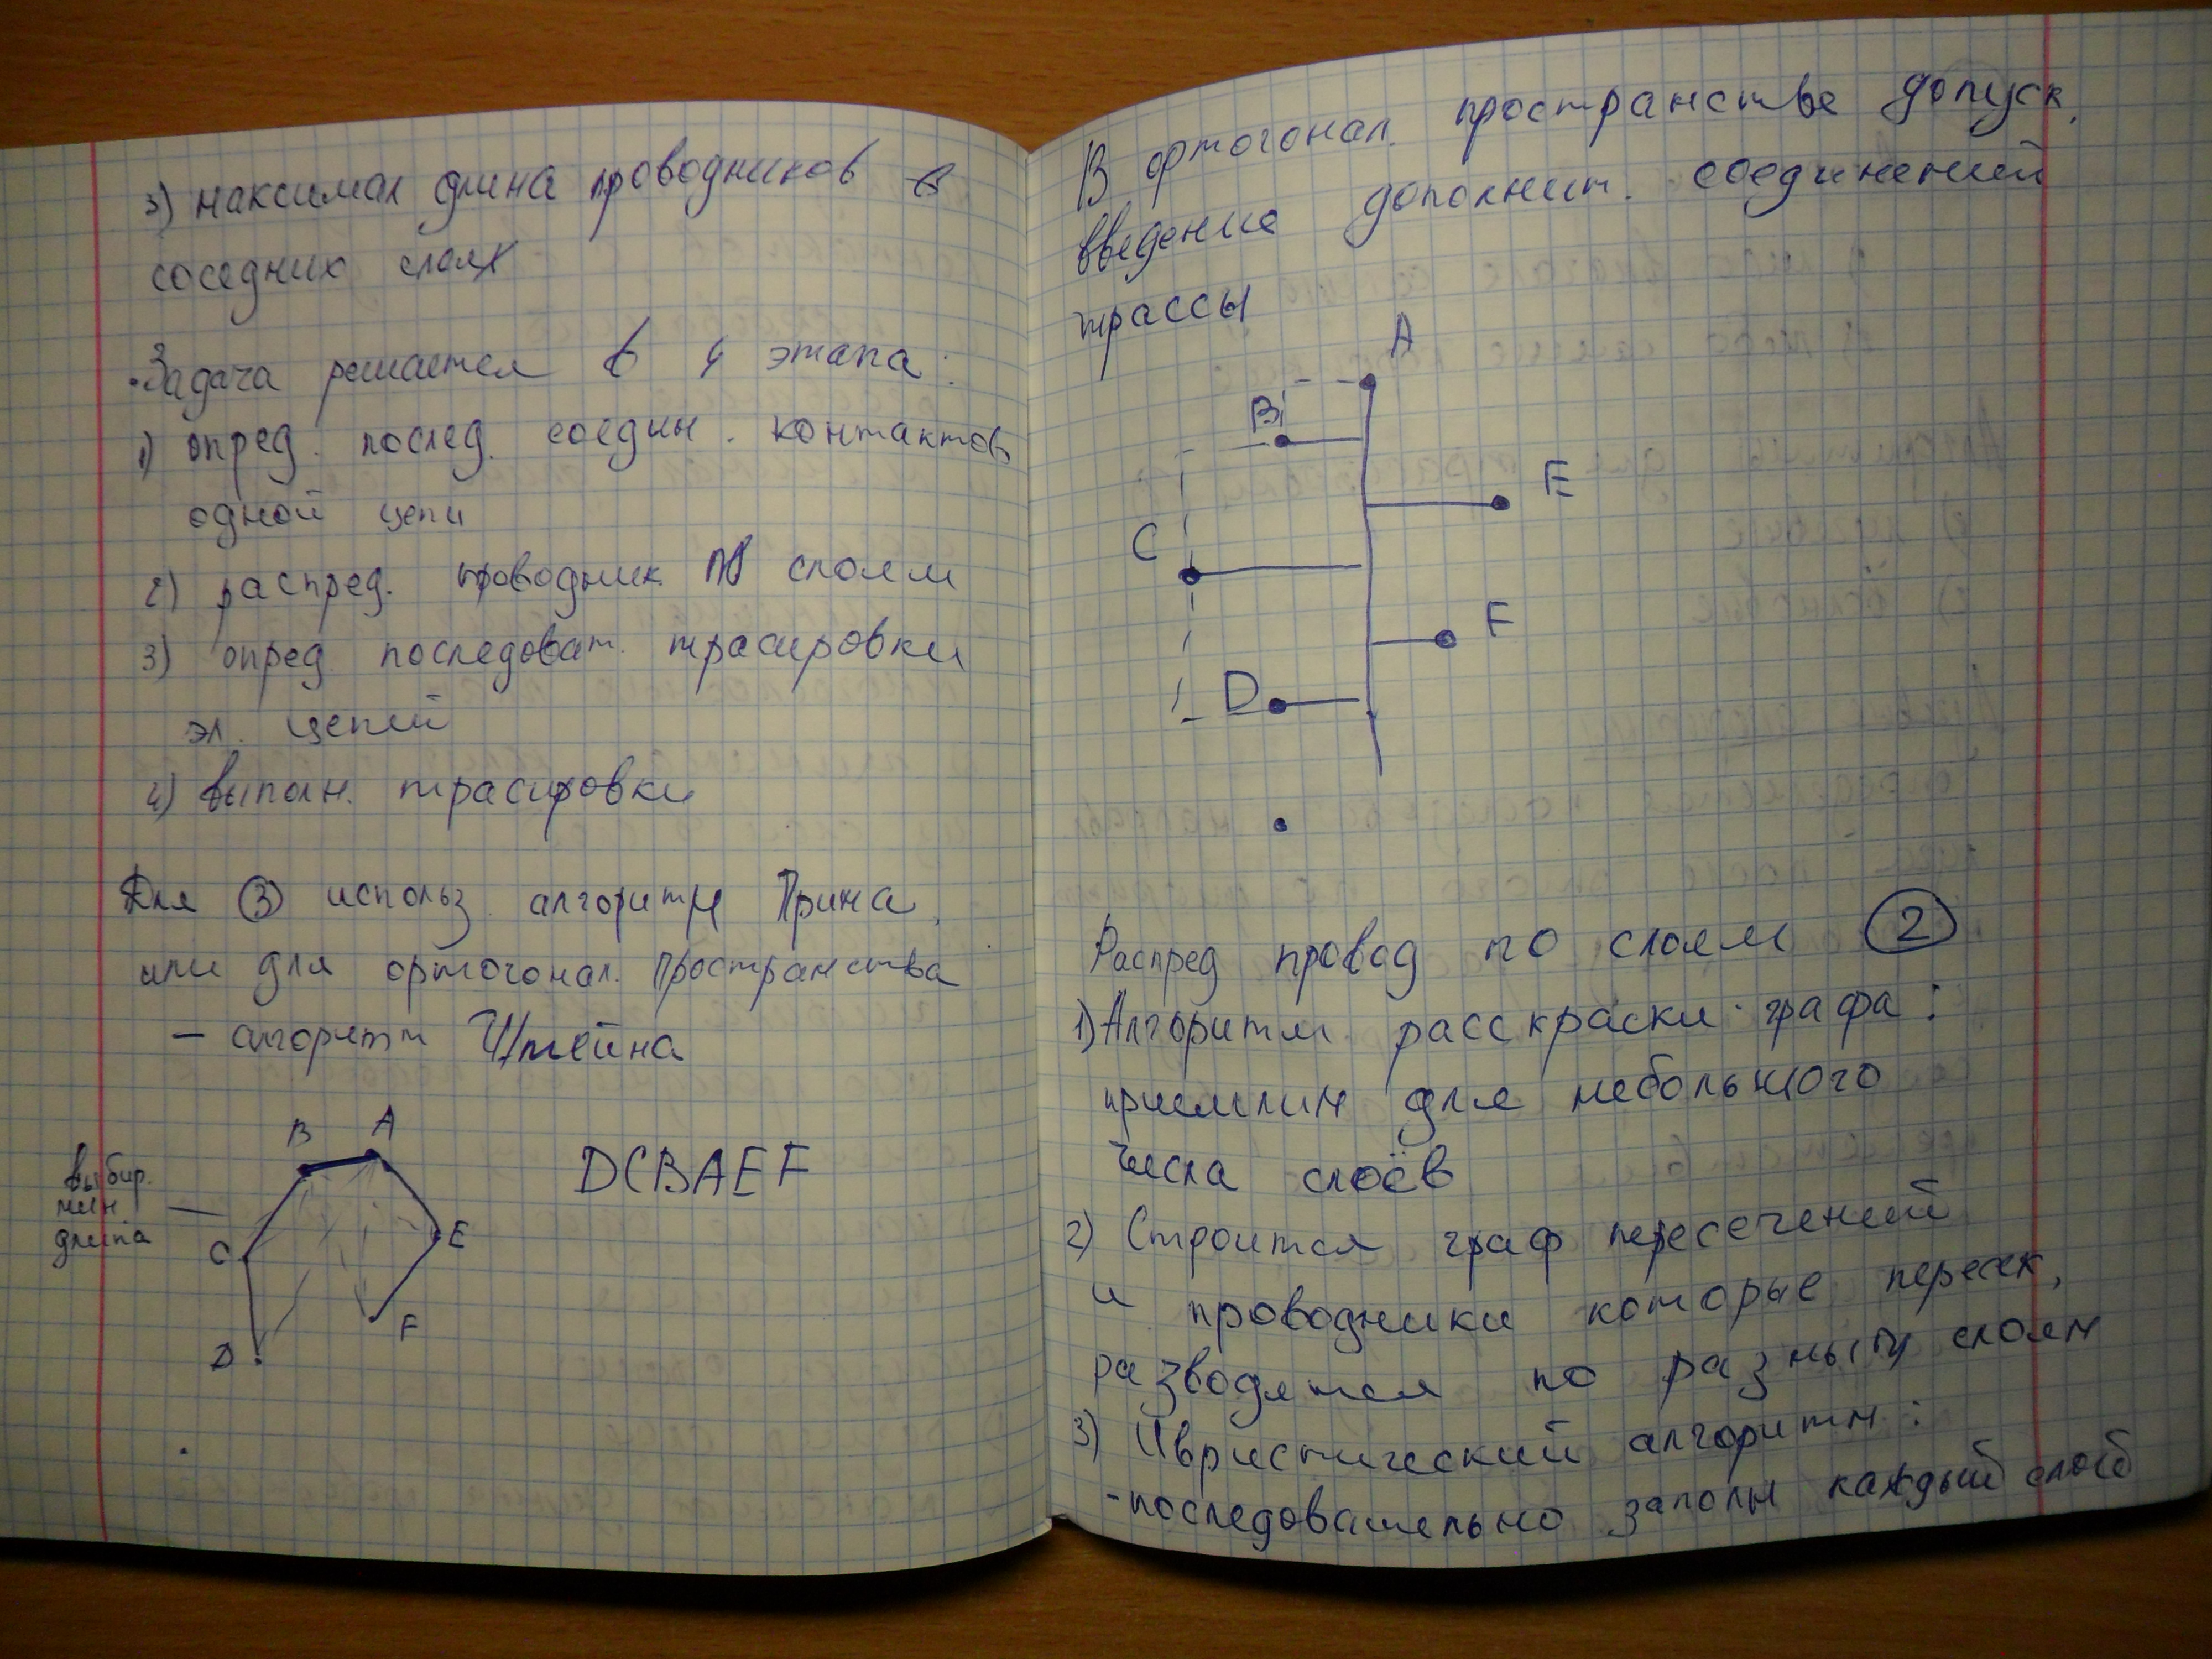 3) максимал длина проводников в
соседних слоях
Задача решается в 4 этапа:
1) опред. послед. соедин. контактов
одной цепи
2) распред. проводник по слоям
3) опред. последоват. трасировки
эл. цепей
4) выполн. трасировки
Для ③ использ. алгоритм Прина,
или для ортогонал. пространства
- алгоритм Штейна
B A
выбир.
мин
длина
C E
F
D
DCBAEF
В ортогонал. пространстве допуск.
введение дополнит. соединений
трассы
A
B
E
C
F
D
Распред провод по слоям ②
1) Алгоритм расскраски графа:
приемлим для небольшого
числа слоёв
2) Строится граф пересечений
и проводники которые пересек,
разводятся по разным слоям
3) Ивристический алгоритм:
-последовательно заполн каждый слой